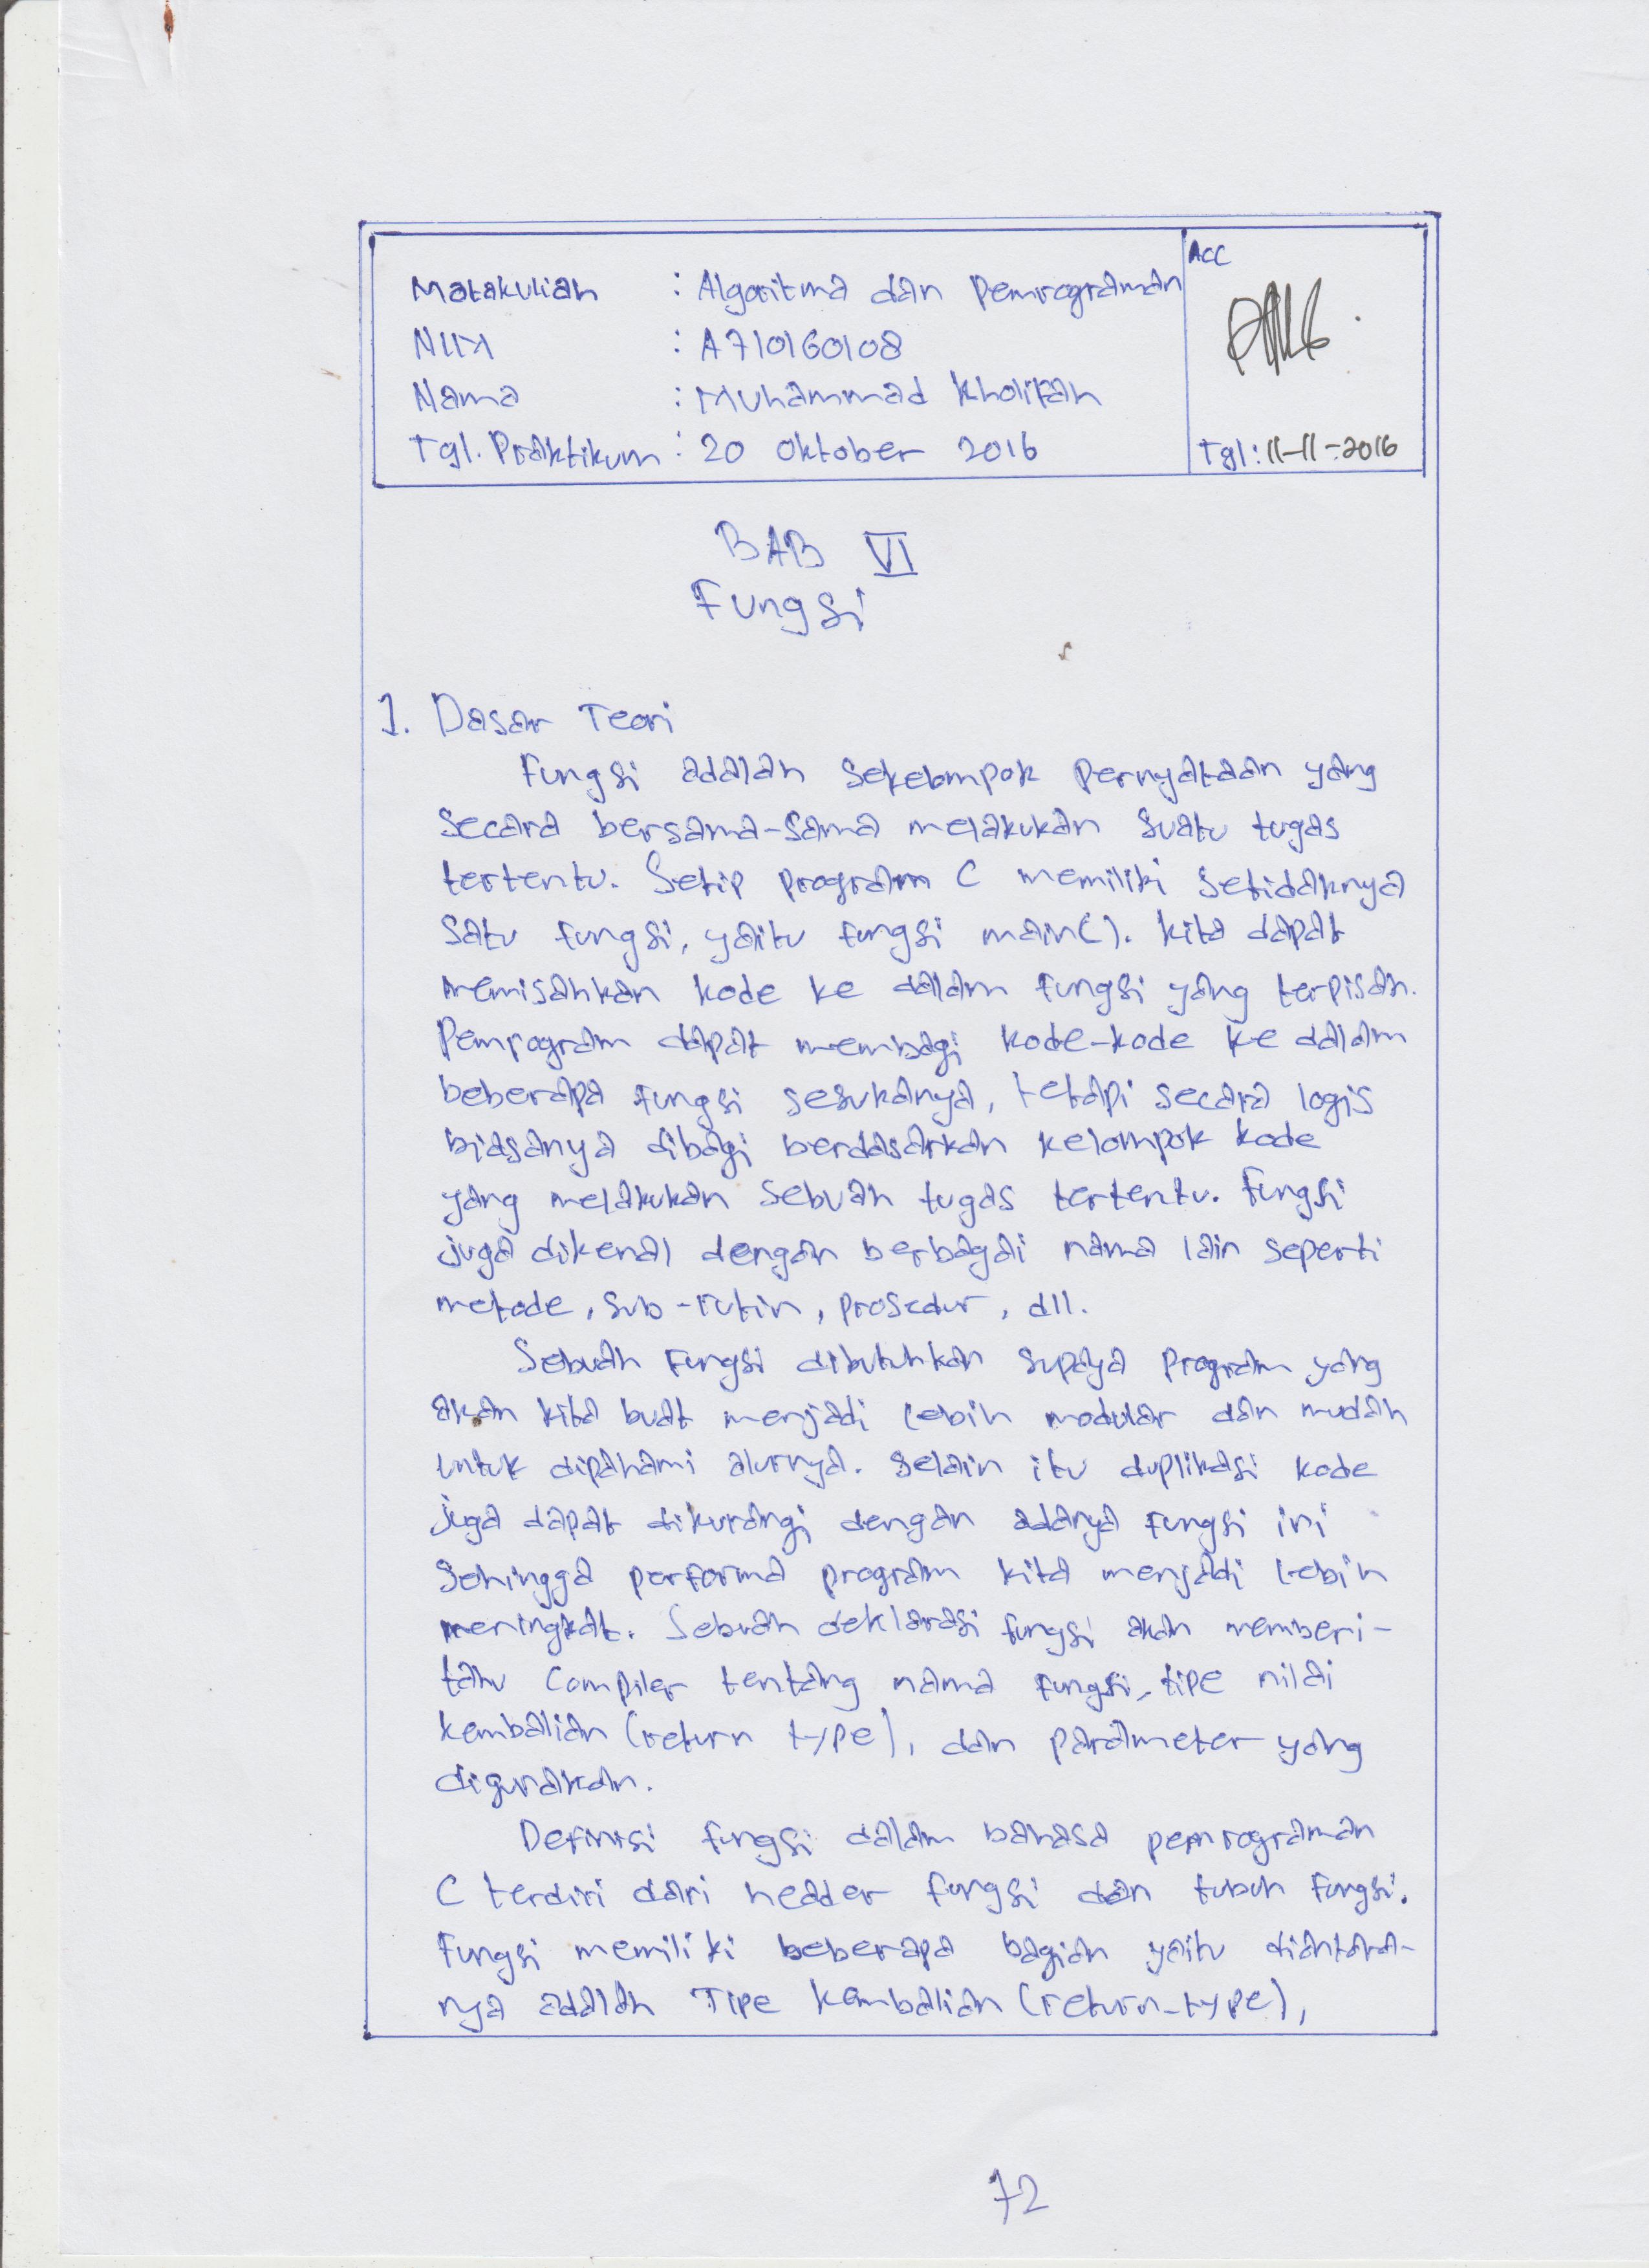 Matakuliah : Algoritma dan Pemrograman
NIM : A710160108
Nama : Muhammad Kholifah
Tgl. Praktikum : 20 Oktober 2016
ACC
Tgl : 11-11-2016
BAB VI
Fungsi
1. Dasar Teori
Fungsi adalah sekelompok pernyataan yang
secara bersama-sama melakukan suatu tugas
tertentu. Setip program C memiliki setidaknya
satu fungsi, yaitu fungsi main(). Kita dapat
memisahkan kode ke dalam fungsi yang terpisah.
Pemrogram dapat membagi kode-kode ke dalam
beberapa fungsi sesukanya, tetapi secara logis
biasanya dibagi berdasarkan kelompok kode
yang melakukan sebuah tugas tertentu. Fungsi
juga dikenal dengan berbagai nama lain seperti
metode, sub-rutin, prosedur, dll.
Sebuah fungsi dibutuhkan supaya program yang
akan kita buat menjadi lebih modular dan mudah
untuk dipahami alurnya. Selain itu duplikasi kode
juga dapat dikurangi dengan adanya fungsi ini
sehingga performa program kita menjadi lebih
meningkat. Sebuah deklarasi fungsi akan memberi-
tahu compiler tentang nama fungsi, tipe nilai
kembalian (return type), dan parameter yang
digunakan.
Definisi fungsi dalam bahasa pemrograman
C terdiri dari header fungsi dan tubuh fungsi.
Fungsi memiliki beberapa bagian yaitu diantara-
nya adalah Tipe kembalian (return-type),
72